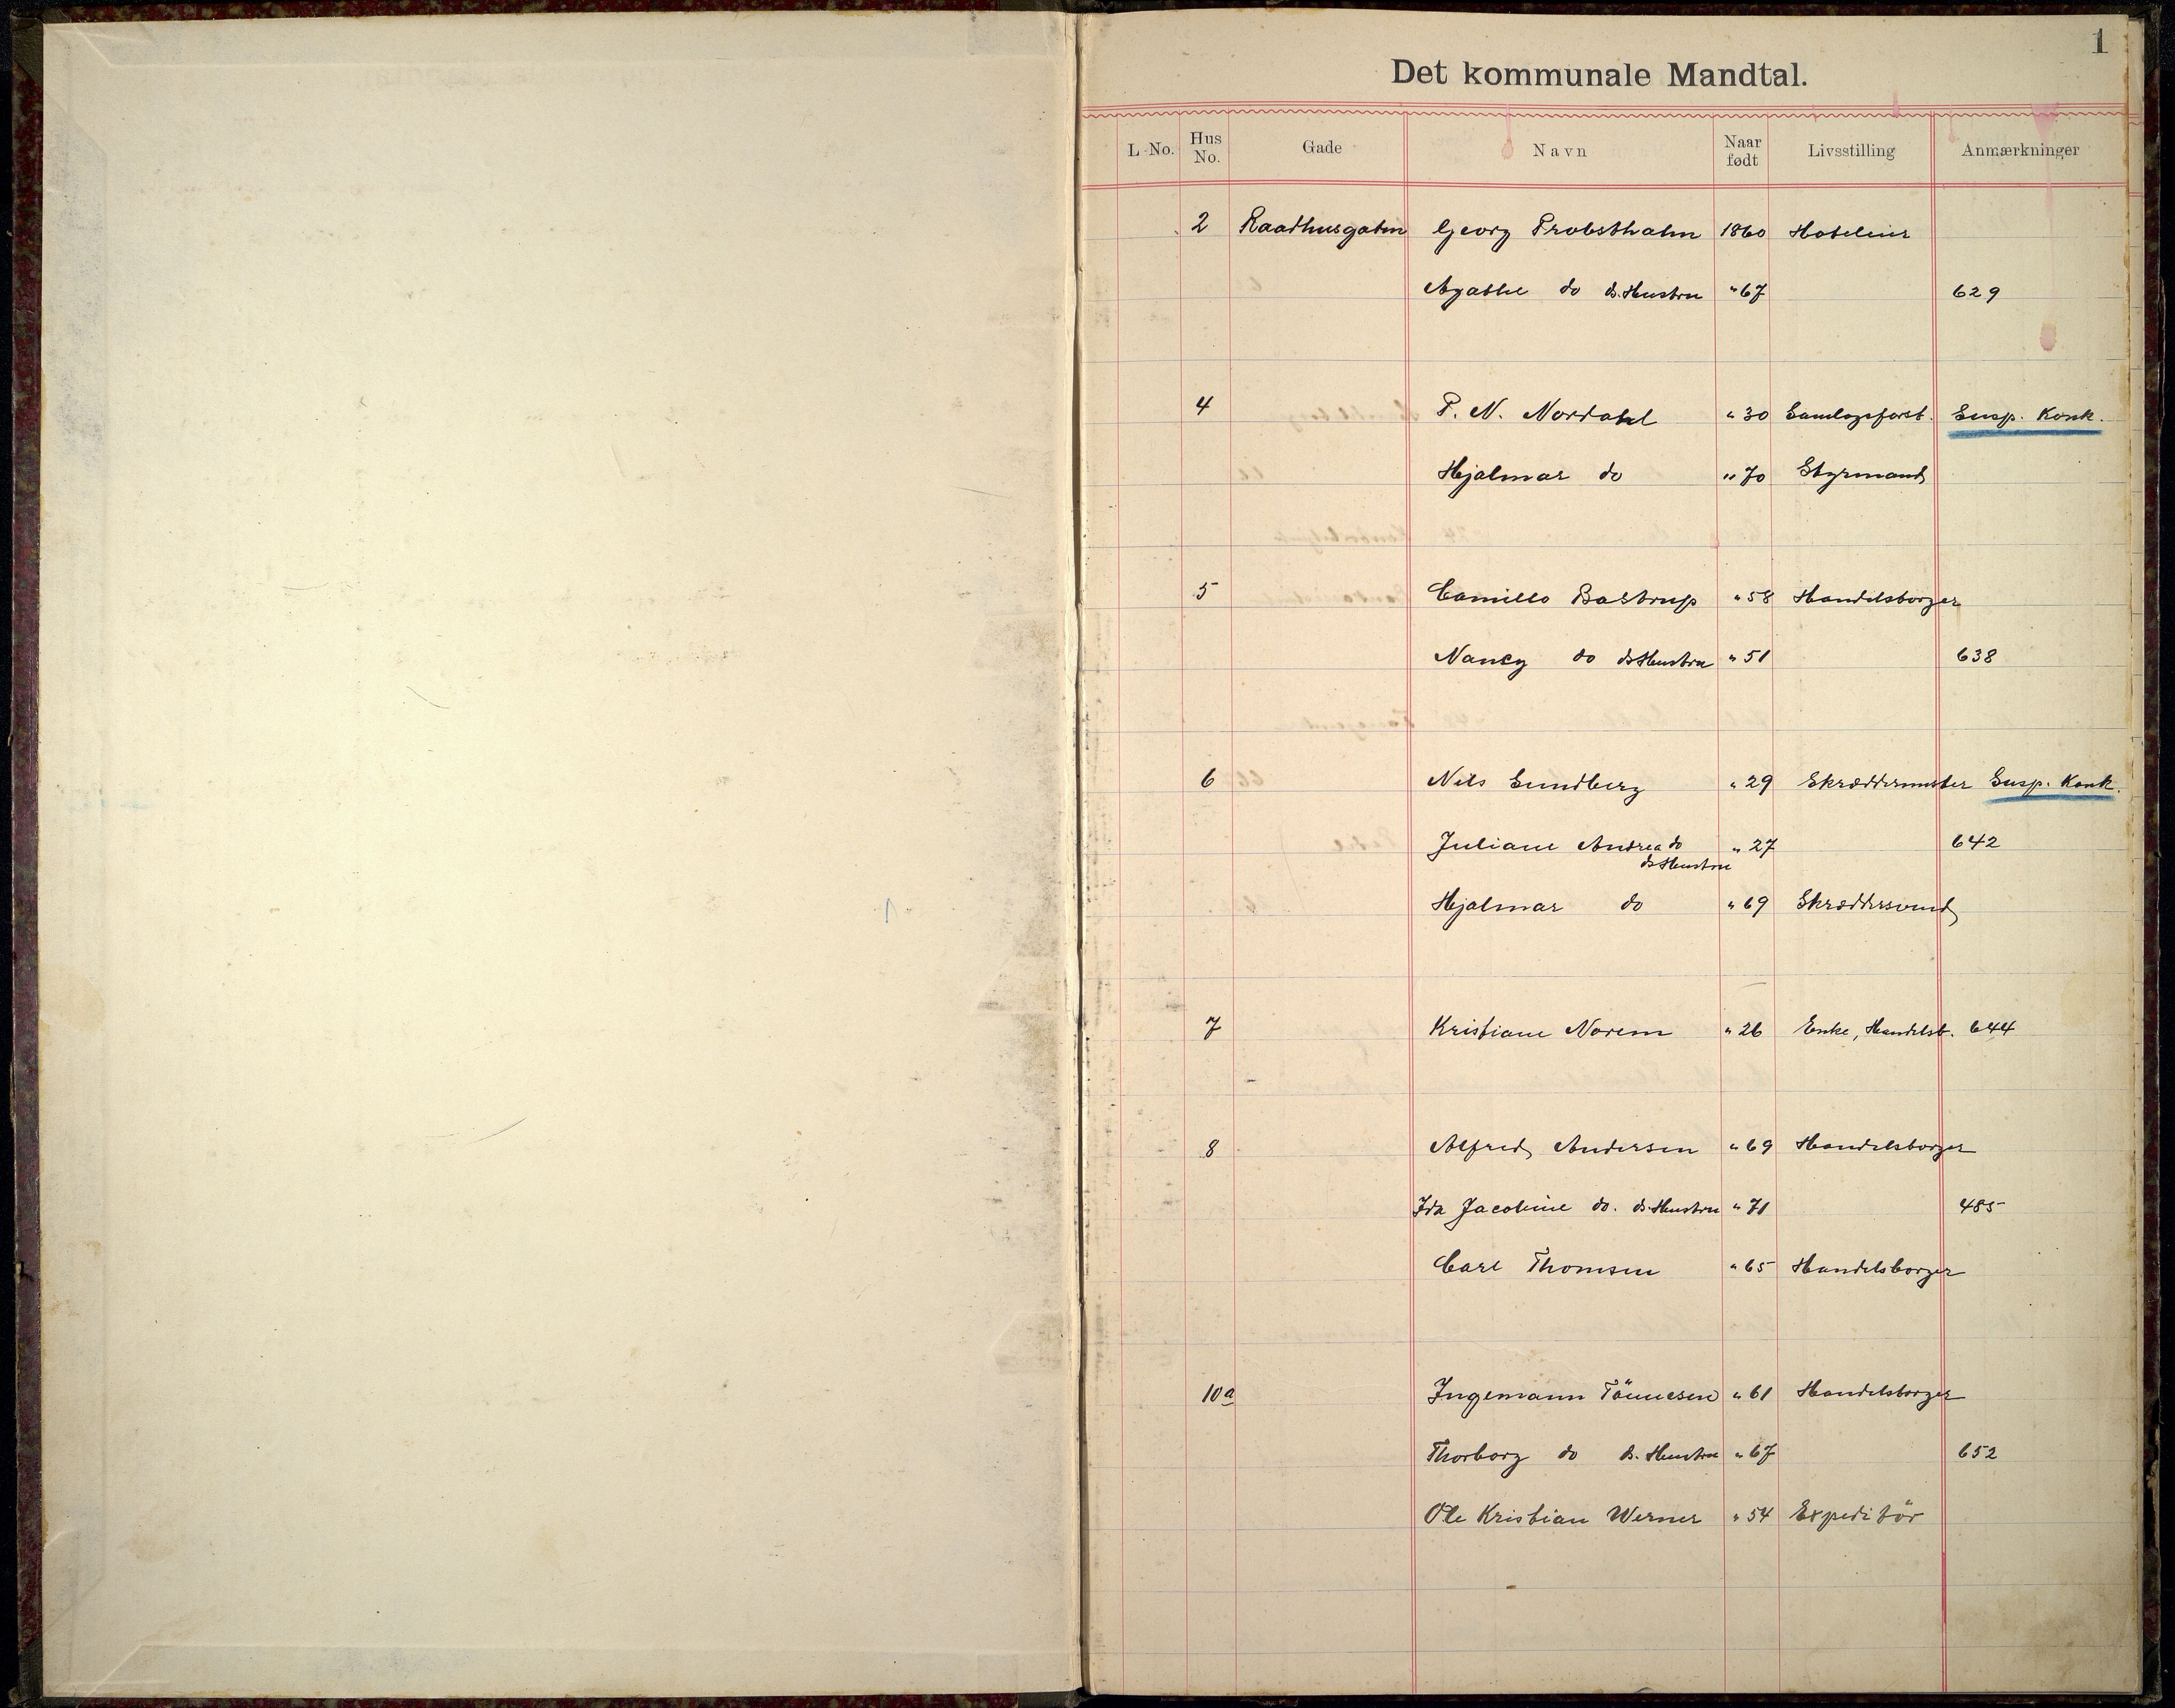 1
Det kommunale Mandtal.
L. No. Hus No. Gade Navn Naar født Livsstilling Anmærkninger
2 Raadhusgaten Georg Probsthahn 1860 Hoteleier
Agathe do ds. Hustru " 67 629
4 P. N. Nordahl " 30 Samlagsforst. Susp. Konk.
Hjalmar do " 70 Styrmand
5 Camillo Bastrup " 58 Handelsborger
Nancy do ds Hustru " 51 638
6 Nils Sundberg " 29 Skræddermester Susp. Konk.
Juliane Andrea do ds Hustru " 27 642
Hjalmar do " 69 Skræddersvend
7 Kristiane Norem " 26 Enke, Handelsb. 644
8 Alfred Andersen " 69 Handelsborger
Ida Jacobine do. ds. Hustru " 71 485
Carl Thomsen " 65 Handelsborger
10a Ingemann Tönnesen " 61 Handelsborger
Thorborg do ds. Hustru " 67 652
Ole Kristian Werner " 54 Expeditör